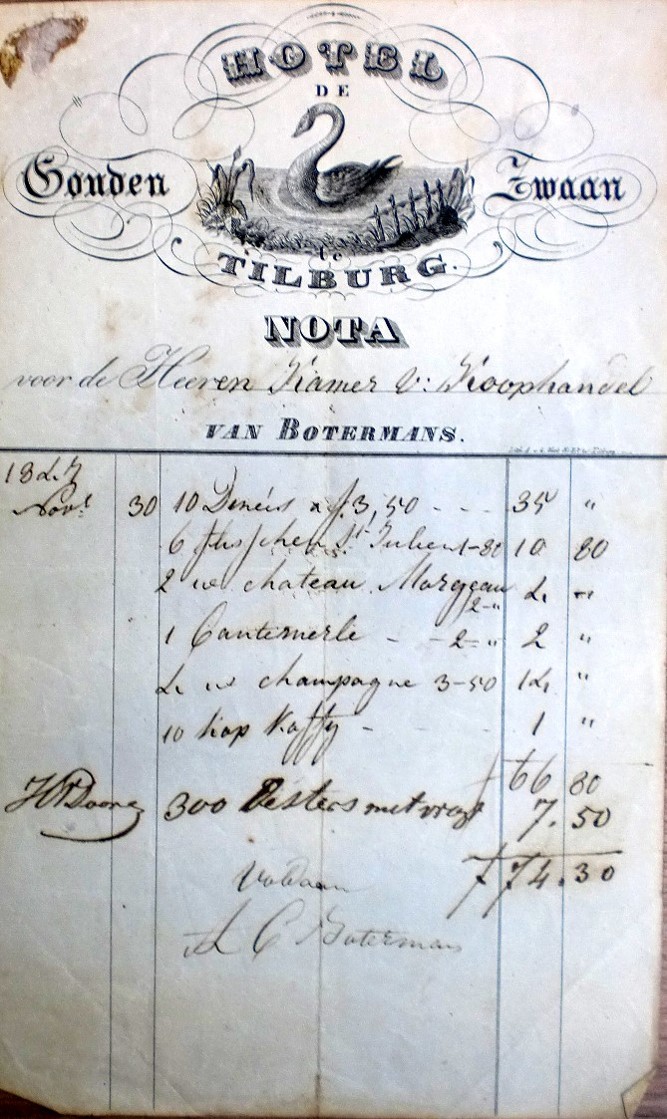 HOTEL
DE
Gouden Zwaan
te
TILBURG.
NOTA
voor de Heeren Kamer v: Koophandel
VAN BOTERMANS.
1847
Nov: 30 10 Dinérs a f. 3,50 - - - 35 "
6 flesschen St Julien 1-80 10 80
2 " chateau Margeau 2-" 4 "
1 Cantemerle - - 2-" 2 "
4 " champagne 3-50 14 "
10 kop Koffy - - - 1 "
f 66 80
300 Oesters met vragt 7.50
f 74.30
Voldaan
A C Botermans